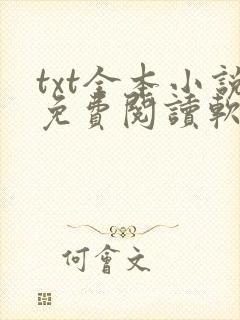 txt全本小說
免費閱讀軟
何會文